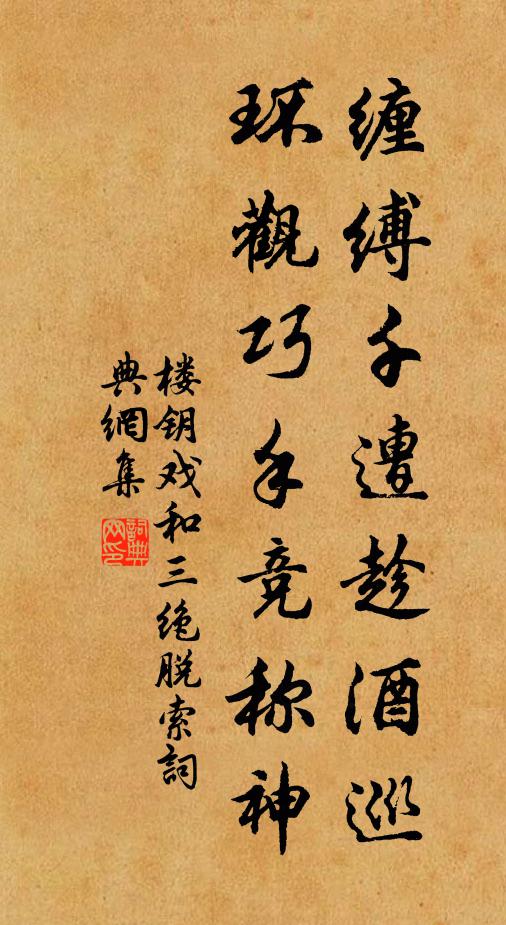 缠缚千遭趁酒巡
环觀巧手竞称神
楼钥戏和三绝脱索詞
典網集
詞典
网印